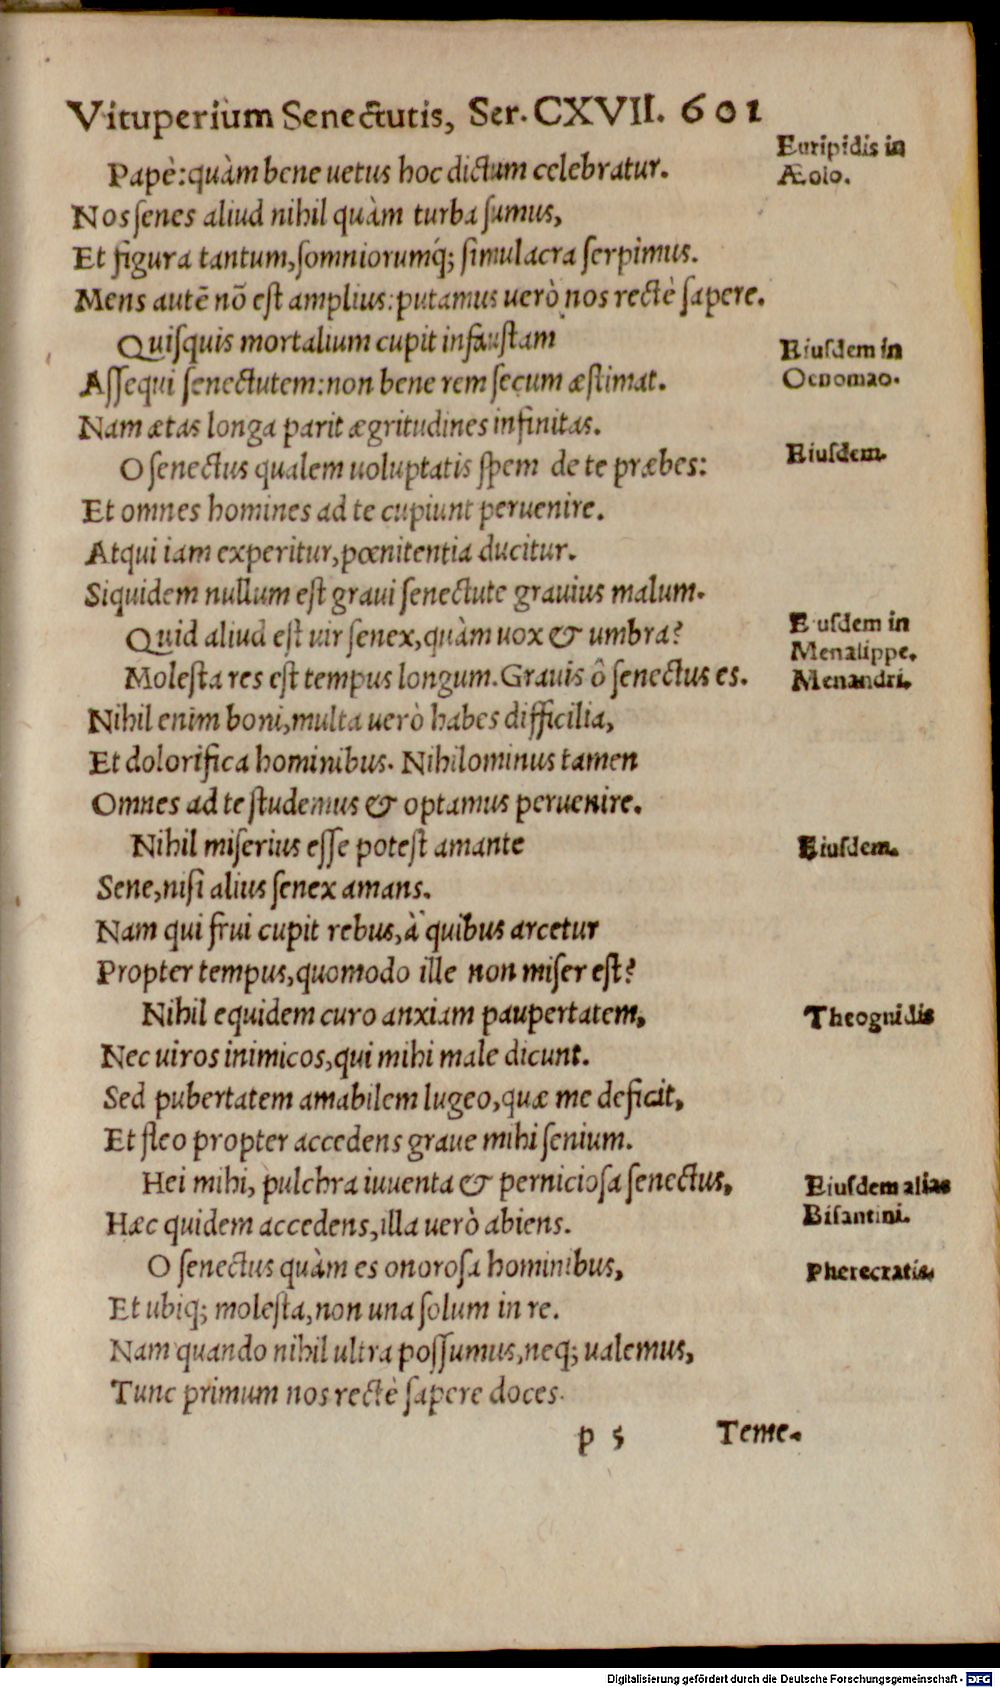 Vituperium Senectutis, Ser. CXVII. 601
Papè: quàm bene uetus hoc dictum celebratur.
Euripidis in
Æolo.
Nos senes aliud nihil quàm turba sumus,
Et figura tantum, somniorumq́; simulacra serpimus.
Mens autē nō est amplius: putamus uerò nos rectè sapere.
Quisquis mortalium cupit infaustam
Eiusdem in
Oenomao.
Assequi senectutem: non bene rem secum æstimat.
Nam ætas longa parit ægritudines infinitas.
O senectus qualem uoluptatis spem de te præbes:
Eiusdem.
Et omnes homines ad te cupiunt peruenire.
Atqui iam experitur, pœnitentia ducitur.
Siquidem nullum est graui senectute grauius malum.
Quid aliud est uir senex, quàm uox & umbra?
Eiusdem in
Menalippe.
Molesta res est tempus longum. Grauis ô senectus es.
Menandri.
Nihil enim boni, multa uerò habes difficilia,
Et dolorifica hominibus. Nihilominus tamen
Omnes ad te studemus & optamus peruenire.
Nihil miserius esse potest amante
Eiusdem.
Sene, nisi alius senex amans.
Nam qui frui cupit rebus, à quibus arcetur
Propter tempus, quomodo ille non miser est?
Nihil equidem curo anxiam paupertatem,
Theognidis
Nec uiros inimicos, qui mihi male dicunt.
Sed pubertatem amabilem lugeo, quæ me deficit,
Et fleo propter accedens graue mihi senium.
Hei mihi, pulchra iuuenta & perniciosa senectus,
Eiusdem alias
Bisantini.
Hæc quidem accedens, illa uerò abiens.
O senectus quàm es onorosa hominibus,
Pherecratis.
Et ubiq; molesta, non una solum in re.
Nam quando nihil ultra possumus, neq; ualemus,
Tunc primum nos rectè sapere doces.
p 5 Teme-
Digitalisierung gefördert durch die Deutsche Forschungsgemeinschaft - DFG